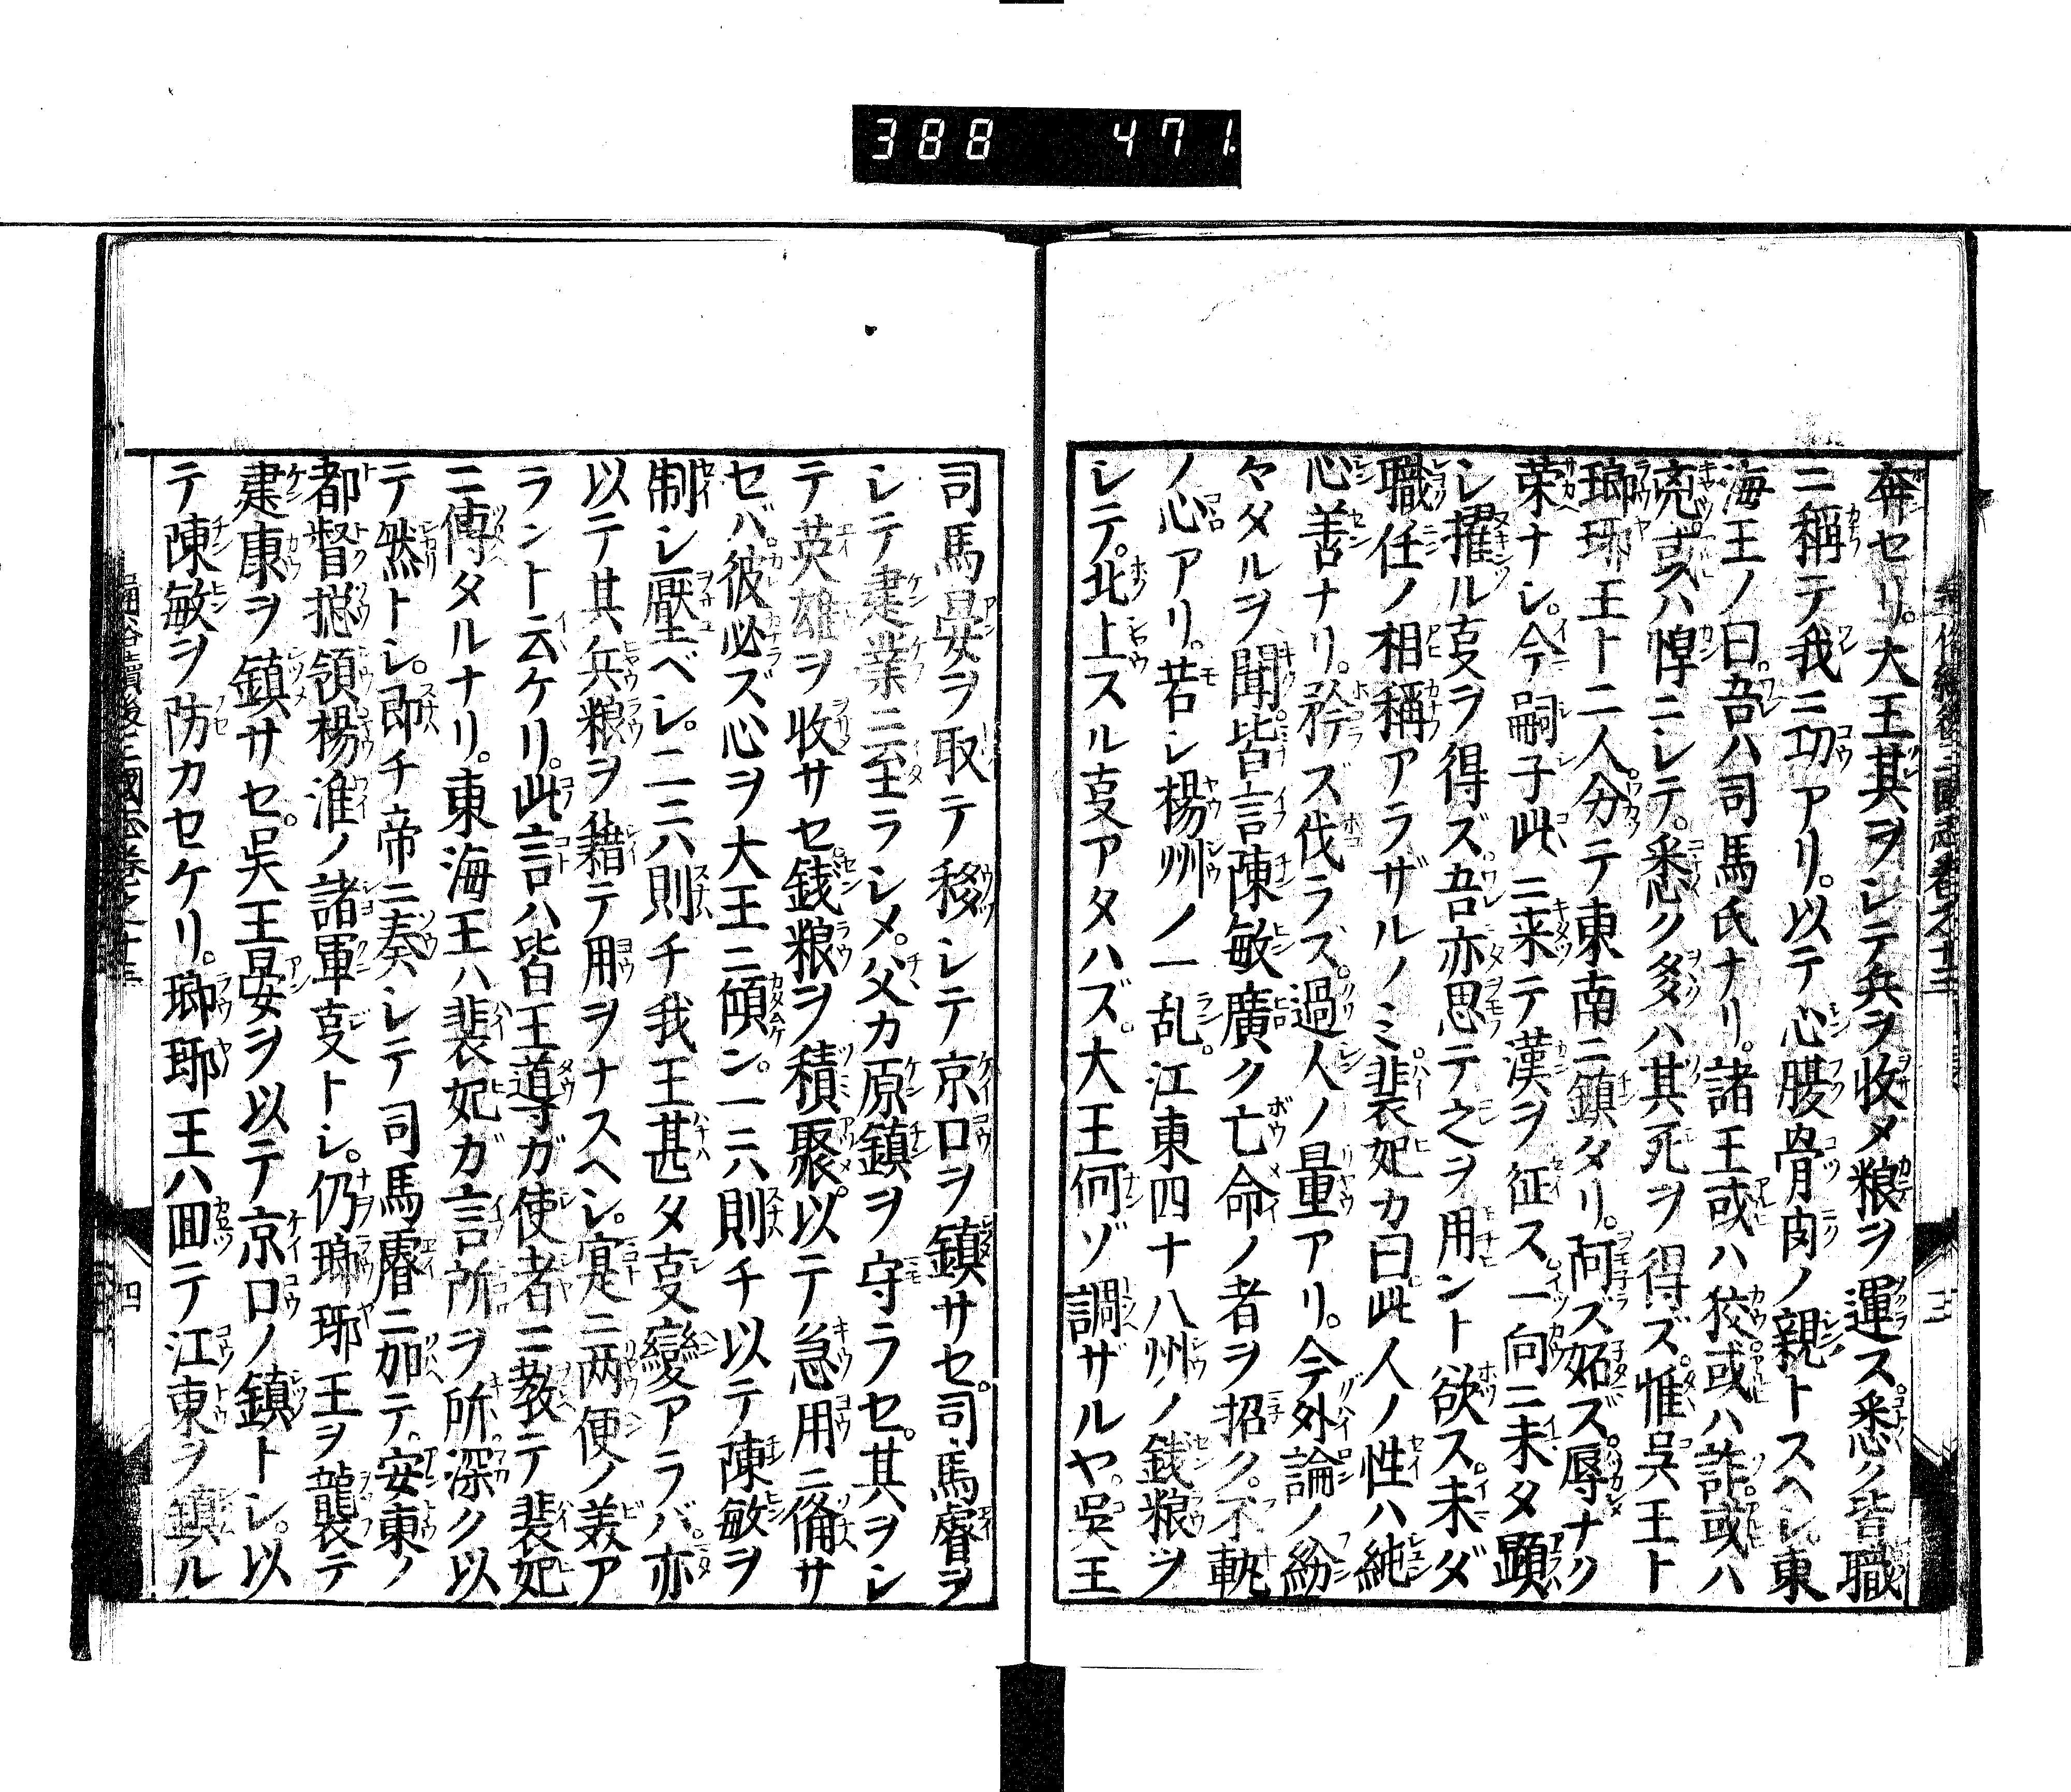 388 471.
奔セリ。大王其ヲシテ兵ヲ收メ粮ヲ運ス悉ク皆職
ニ稱テ我ニ功アリ。以テ心腹骨肉ノ親トスヘシ。東
海王ノ曰。吾ハ司馬氏ナリ。諸王或ハ狡或ハ詐或ハ
兇或ハ悍ニシテ。悉ク多ハ其死ヲ得ズ惟呉王ト
瑯琊王ト二人分テ東南ニ鎮タリ。阿ズ妬ズ辱ナク
荣ナシ。今嗣子此ニ来テ漢ヲ征ス一向ニ未タ顕
レ擢ル叓ヲ得ズ吾亦思テ之ヲ用ント欲ス未ダ
職任ノ相稱アラザルノミ裴妃カ曰此人ノ性ハ純
心善ナリ。矜ズ伐ラス。過人ノ量アリ。今外論ノ紛
々タルヲ聞皆言陳敏廣ク亡命ノ者ヲ招ク。不軌
ノ心アリ。若シ楊州ノ一乱。江東四十八州ノ銭粮ヲ
シテ。北上スル叓アタハズ。大王何ゾ調ザルヤ。呉王
司馬晏ヲ取テ移シテ京口ヲ鎮サセ。司馬睿ヲ
シテ建業ニ至ラシメ。父カ原鎮ヲ守ラセ。其ヲシ
テ英雄ヲ收サセ。銭粮ヲ積聚。以テ急用ニ備サ
セバ。彼必ズ心ヲ大王ニ傾ン。一ニハ則チ以テ陳敏ヲ
制シ壓ベシ。二ニハ則チ我王甚タ叓變アラバ。亦
以テ其兵粮ヲ藉テ用ヲナスヘシ。寔ニ两便ノ美ア
ラント云ケリ。此言ハ皆王導ガ使者ニ教テ裴妃
ニ傳タルナリ。東海王ハ裴妃ガ言所ヲ所深ク以
テ然トシ。即チ帝ニ奏シテ司馬睿ニ加テ。安東ノ
都督揔領楊淮ノ諸軍叓トシ。仍瑯琊王ヲ襲テ
建康ヲ鎮サセ。呉王晏ヲ以テ京口ノ鎮トシ。以
テ陳敏ヲ防カセケリ。瑯琊王ハ囬テ江東ヲ鎮ル
通俗續後三國志卷之十三
四